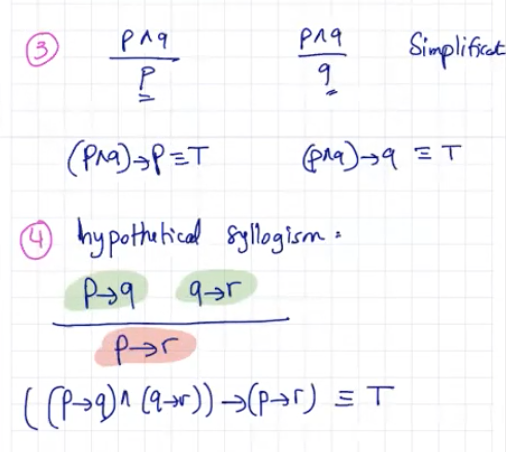 ③ p∧q p∧q Simplificat
p q
(p∧q)→p≡T (p∧q)→q ≡ T
④ hypothetical syllogism:
p→q q→r
p→r
((p→q)∧(q→r))→(p→r) ≡ T